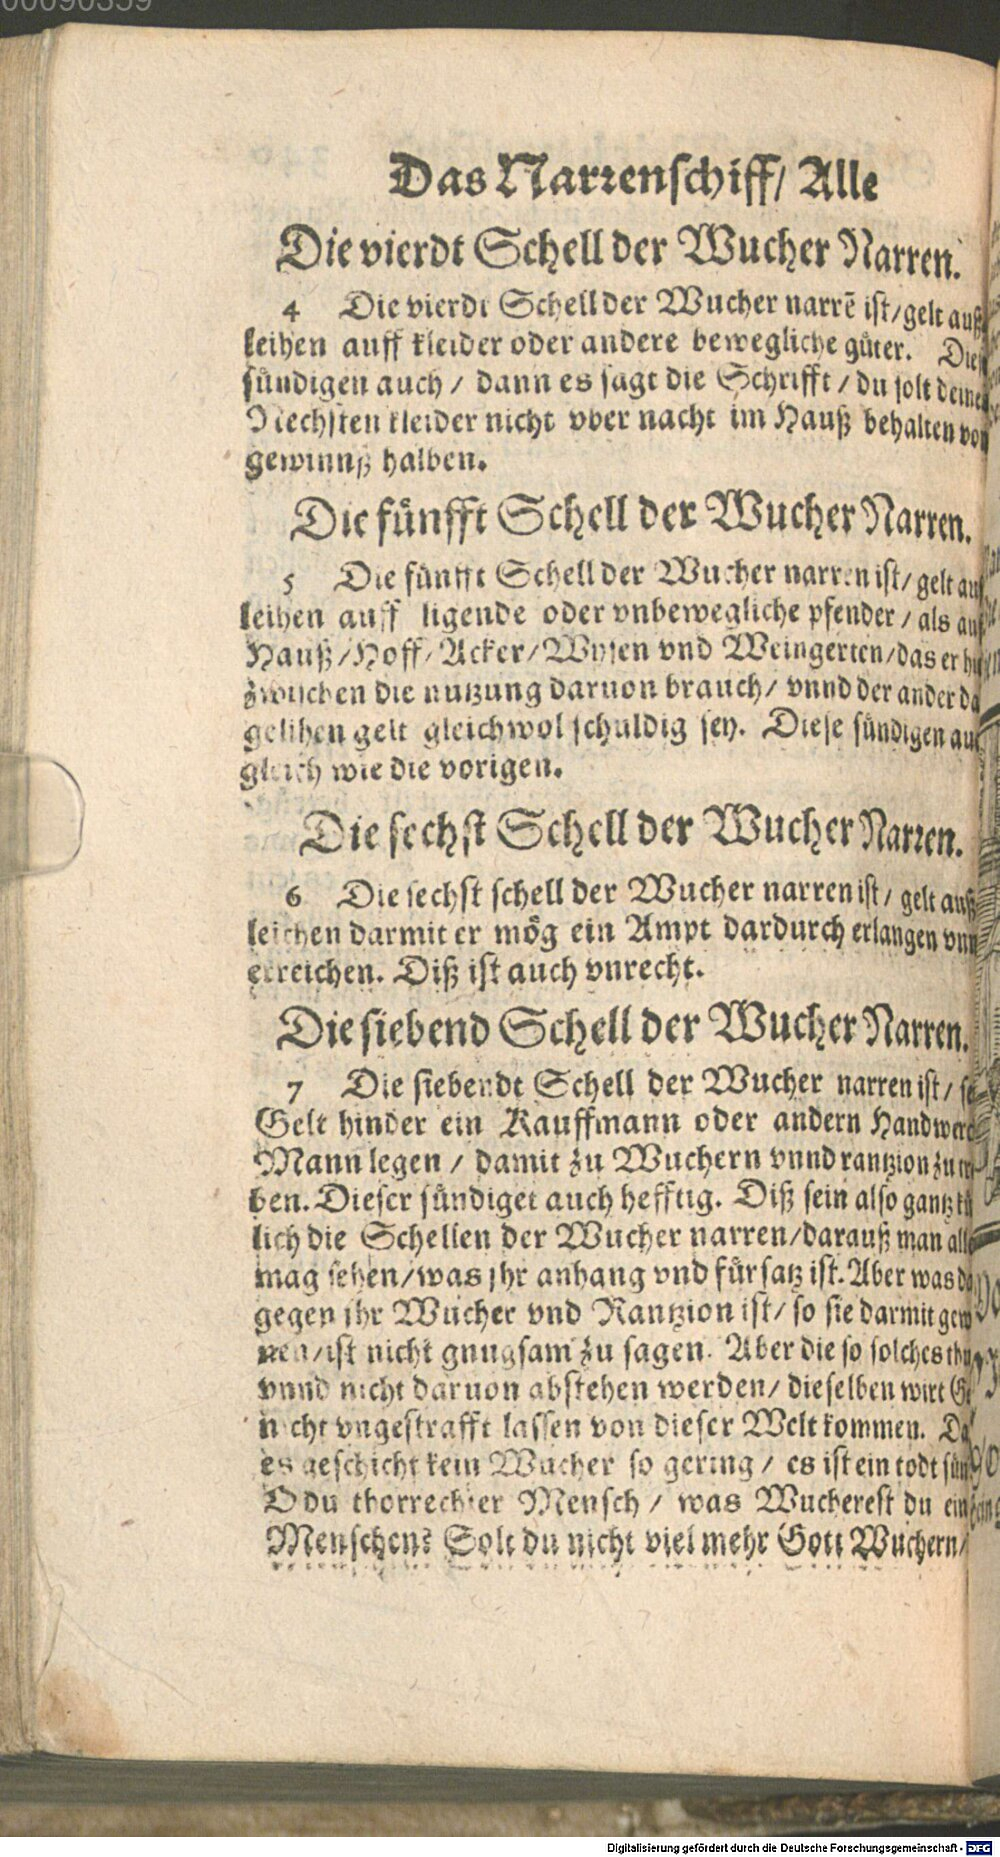 00090359
Das Narrenschiff/ Alle
Die vierdt Schell der Wucher Narren.
4 Die vierdt Schell der Wucher narrē ist/gelt auß
leihen auff kleider oder andere bewegliche güter. Die
sündigen auch / dann es sagt die Schrifft / du solt deine
Nechsten kleider nicht vber nacht im Hauß behalten von
gewinnß halben.
Die fünfft Schell der Wucher Narren.
5 Die fünfft Schell der Wucher narren ist/ gelt auß
leihen auff ligende oder vnbewegliche pfender / als auff
Hauß/Hoff/Acker/Wysen vnd Weingerten/das er hie
zwischen die nutzung daruon brauch/ vnnd der ander da
gelihen gelt gleichwol schuldig sey. Diese sündigen auch
gleich wie die vorigen.
Die sechst Schell der Wucher Narren.
6 Die sechst schell der Wucher narren ist/ gelt auß
leichen darmit er mög ein Ampt dardurch erlangen vnn
erreichen. Diß ist auch vnrecht.
Die siebend Schell der Wucher Narren.
7 Die siebendt Schell der Wucher narren ist/
Gelt hinder ein Kauffmann oder andern Handwerc
Mann legen / damit zu Wuchern vnnd rantzion zu
ben. Dieser sündiget auch hefftig. Diß sein also gantz
lich die Schellen der Wucher narren/darauß man alle
mag sehen/was jhr anhang vnd fürsatz ist. Aber was
gegen jhr Wucher vnd Rantzion ist/ so sie darmit gew
nen/ist nicht gnugsam zu sagen. Aber die so solches thu
vnnd nicht daruon abstehen werden/ dieselben wirt
nicht vngestrafft lassen von dieser Welt kommen.
es geschicht kein Wucher so gering / es ist ein todt sün
O du thorrechter Mensch / was Wucherest du ein
Menschen? Solt du nicht viel mehr Gott Wuchern/
Digitalisierung gefördert durch die Deutsche Forschungsgemeinschaft - DFG